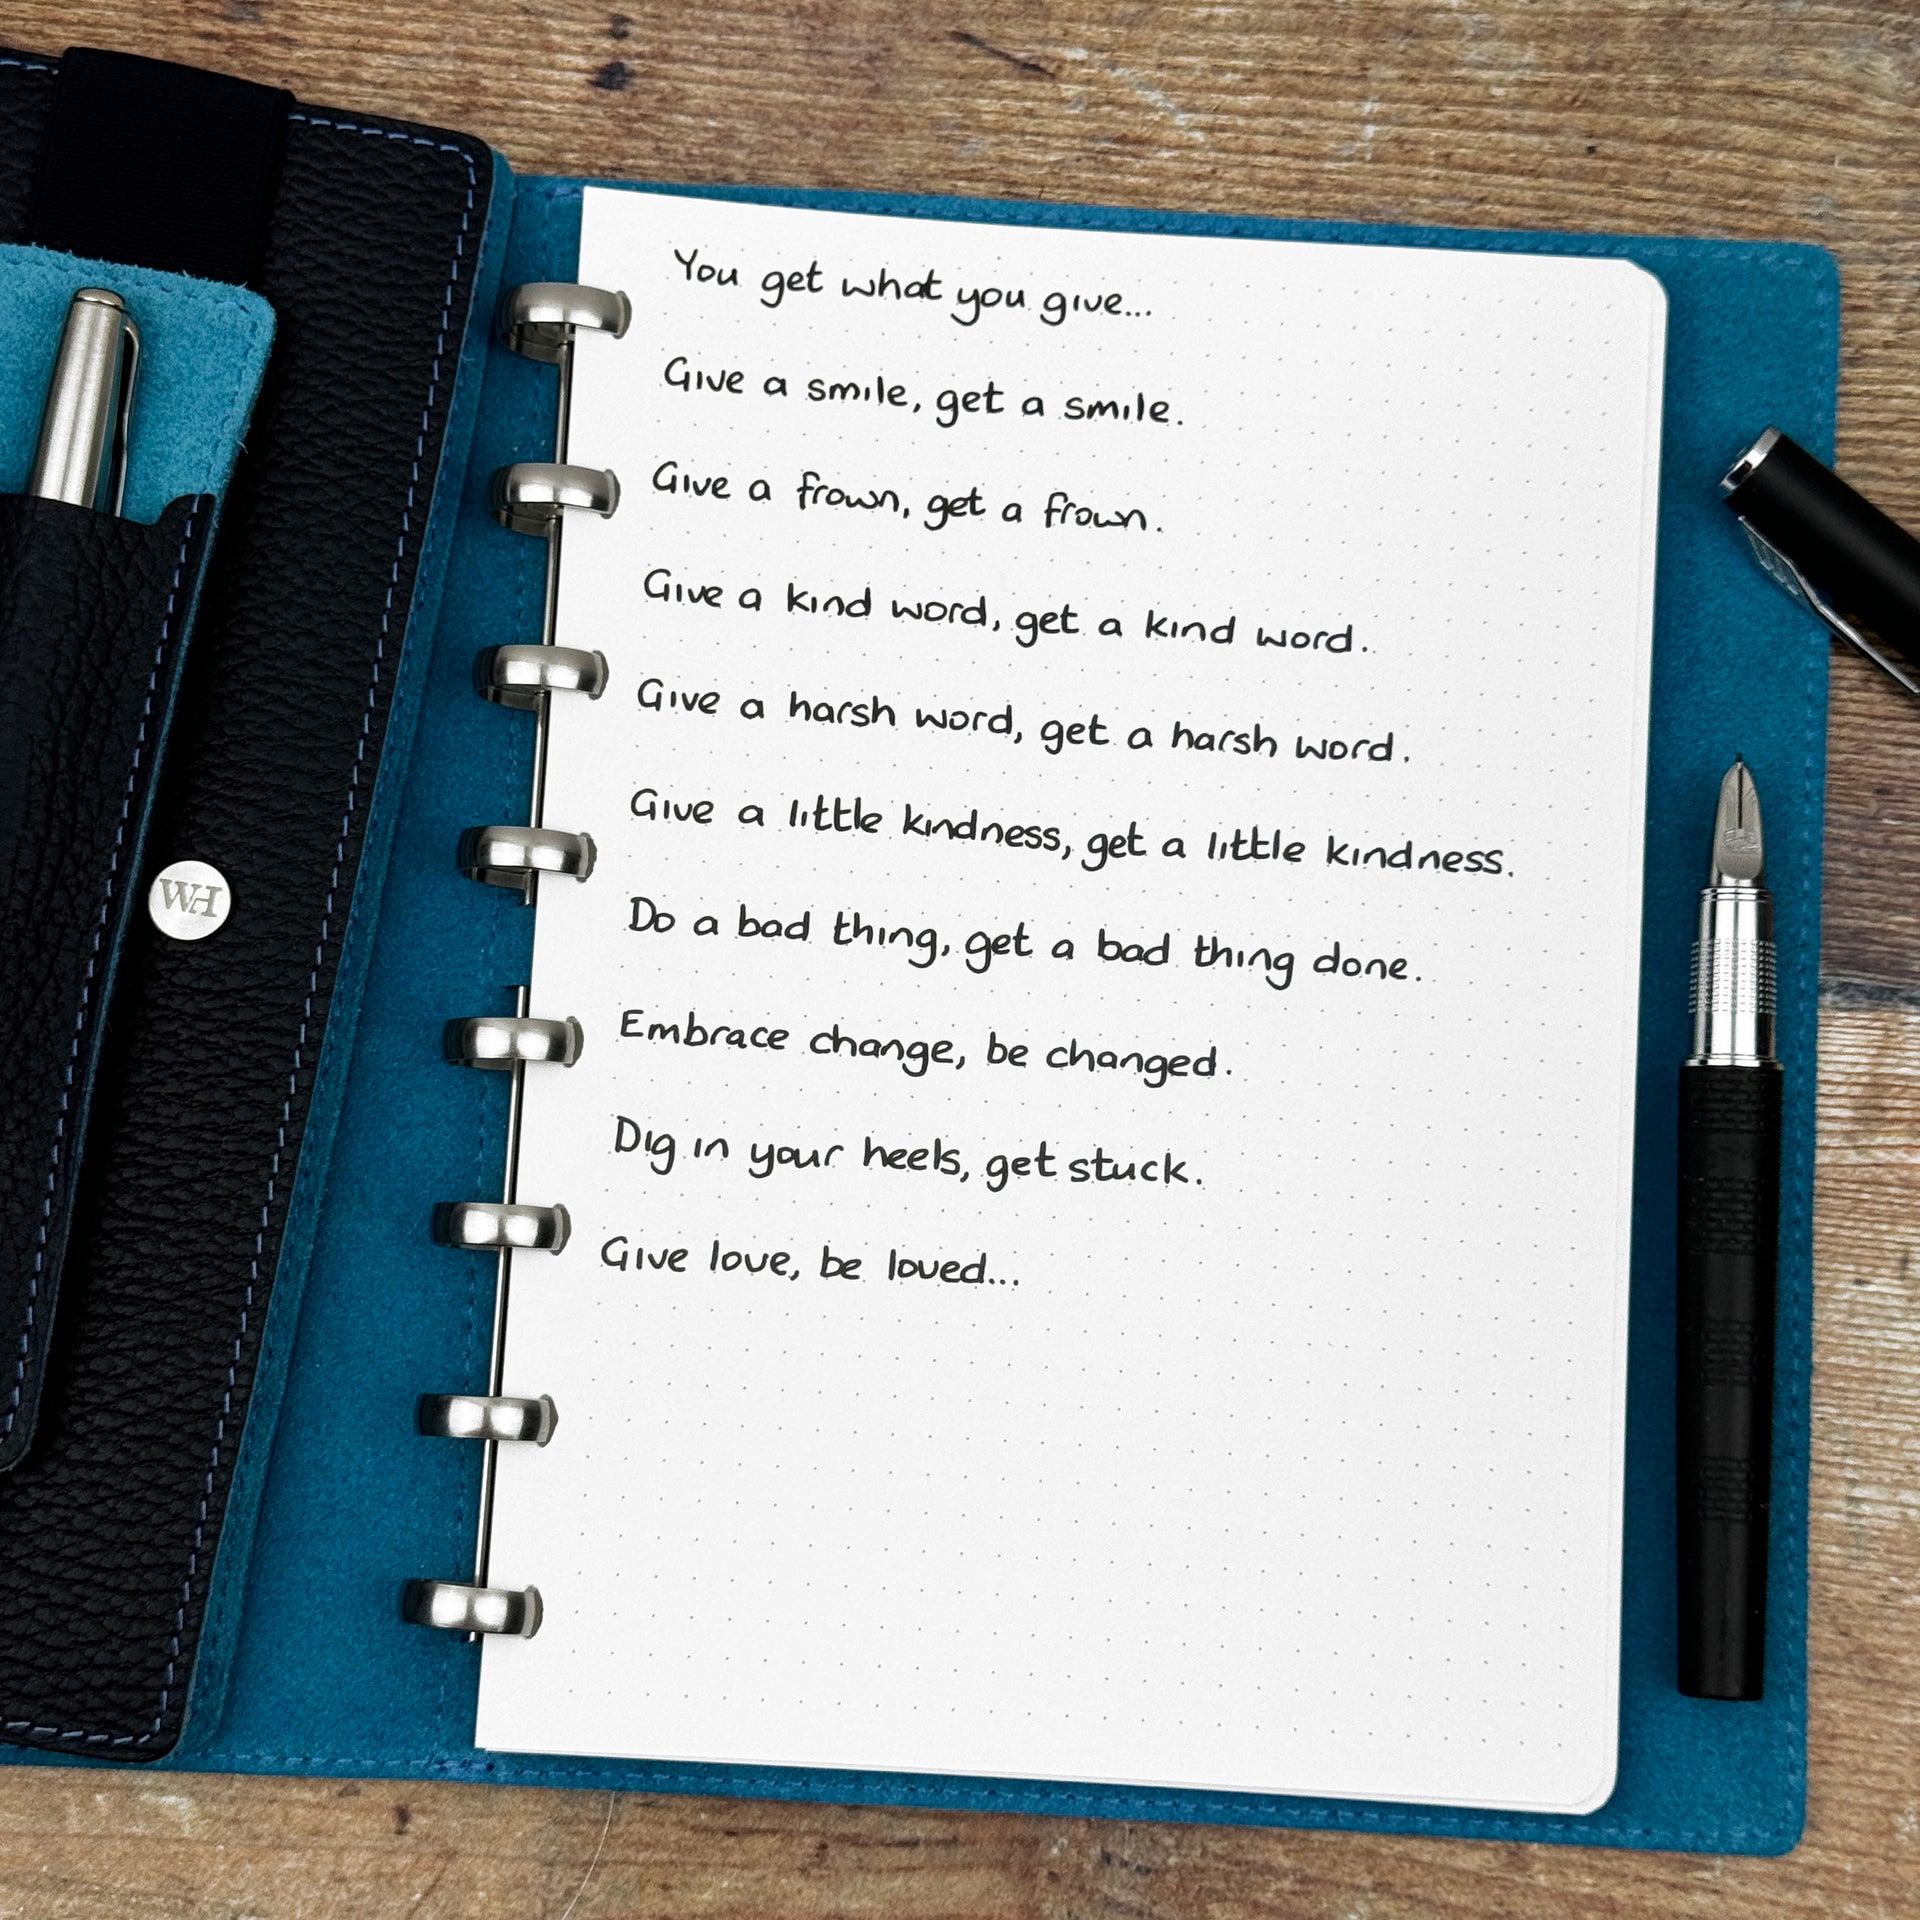 You get what you give...
Give a smile, get a smile.
Give a frown, get a frown.
Give a kind word, get a kind word.
Give a harsh word, get a harsh word.
Give a little kindness, get a little kindness.
Do a bad thing, get a bad thing done.
Embrace change, be changed.
Dig in your heels, get stuck.
Give love, be loved...
WH